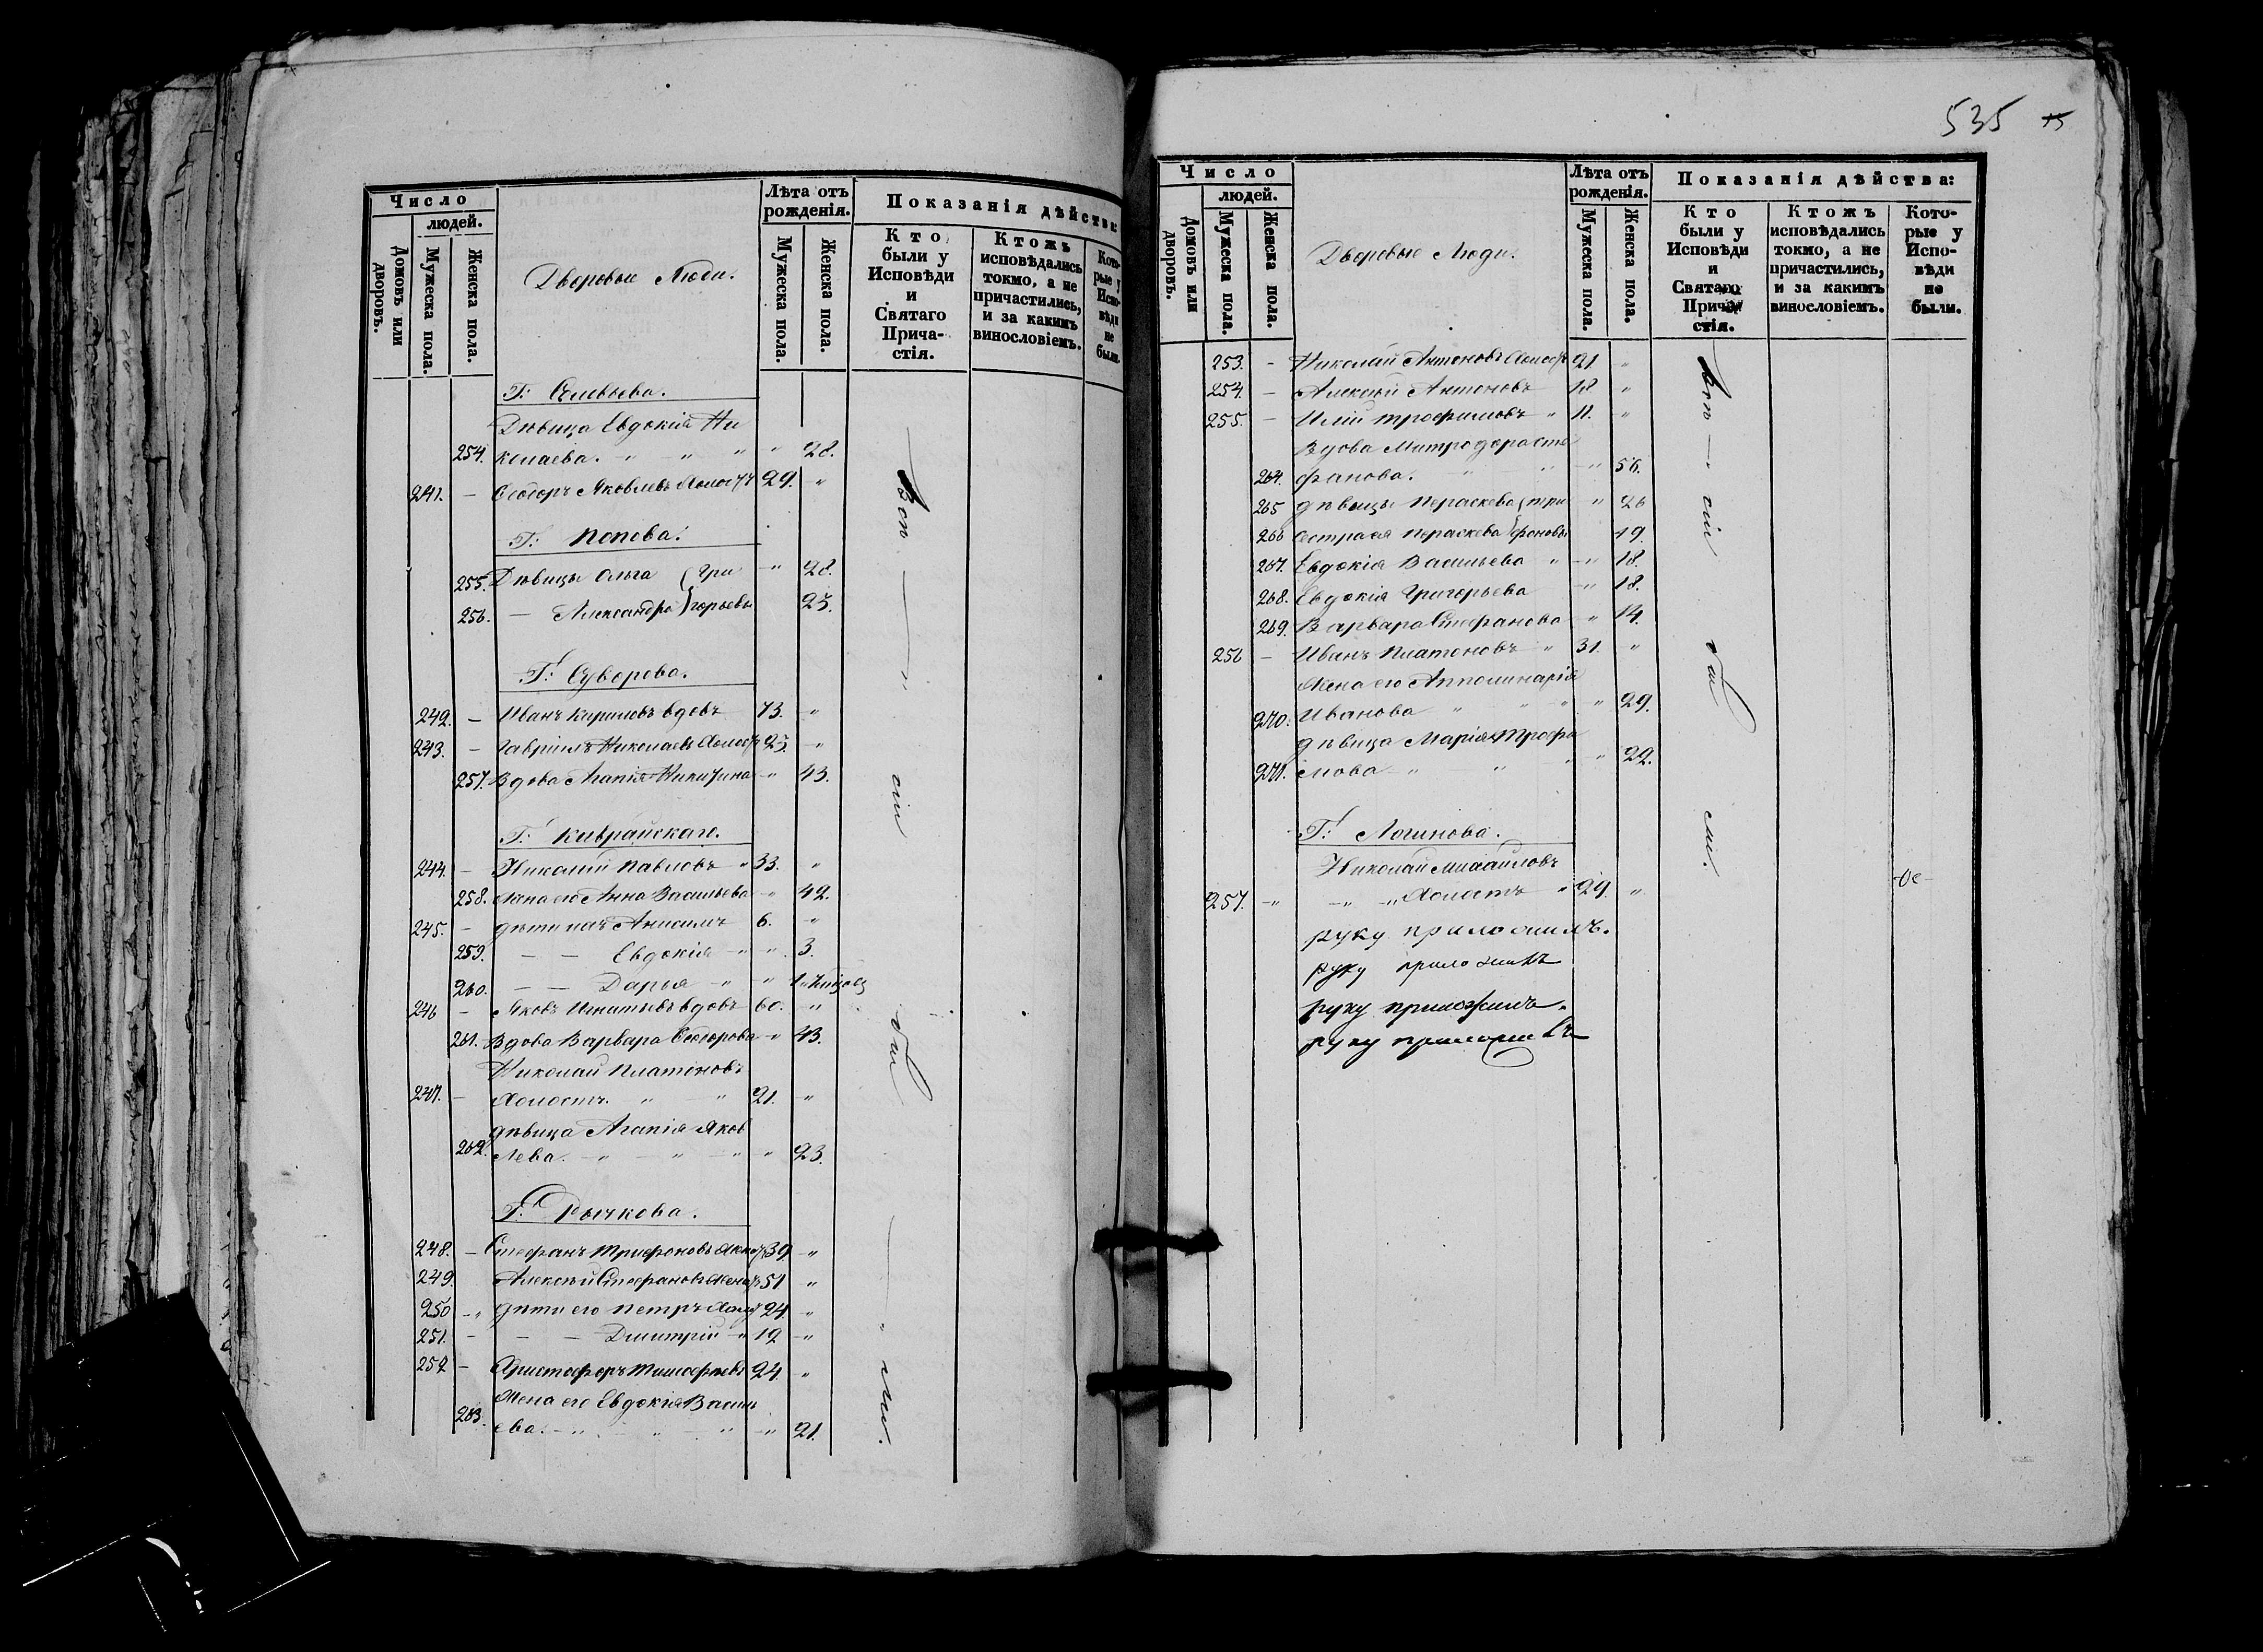 Число
людей.
Домовъ или дворовъ.
Мужеска пола.
Женска пола.
Дворовые Люди.
Лѣта отъ рожденія.
Мужеска пола.
Женска пола.
Показанія дѣйства:
Кто были у Исповѣди и Святаго Прича-стія.
Ктожъ исповѣдались токмо, а не причастились, и за какимъ винословіемъ.
Кото-рые у Испо-вѣди не были.
Г:
Дѣвица Евдокія Ни
254. колаева. " " " " 28.
241. - Ѳеодоръ Яковлевъ 29. "
Г: Попова.
255. Дѣвицы Ольга { Гри " 28.
256. — Александра } горьевы 25.
Г: Суворова.
242. - Иванъ Кириловъ вдовъ 73. "
243. - Гавріилъ Николаевъ Холост 25. "
257. Вдова Агапія Никитина " 43.
Г: Киврайскаго.
244. - Николай Павловъ " 33. "
258. Жена его Анна Васильева " 42.
245. - дѣти ихъ Анисимъ 6. "
259. — — Евдокія " " 3.
260. — — Дарья " " 1
246 - Яковъ Игнатьевъ вдовъ 60. "
261. Вдова Варвара Ѳеодорова " 43.
Николай Платоновъ
247. - Холостъ. " " 21. "
дѣвица Агапія Яков
262. лева. " " " " 23.
Г: Рычкова.
248. - Стефанъ Трифоновъ 39 "
249. Алексѣй Стефановъ 51 "
250 " дѣти его Петръ Холост 24. "
251. - — — Дмитрій " 19 "
252 - Христофоръ Тимофеевъ 24. "
Жена его Евдокія Василь
263. ева. " " " " 21.
Вси сіи были
535
Число
людей.
Домовъ или дворовъ.
Мужеска пола.
Женска пола.
Дворовые Люди.
Лѣта отъ рожденія.
Мужеска пола.
Женска пола.
Показанія дѣйства:
Кто были у Исповѣди и Святаго Прича-стія.
Ктожъ исповѣдались токмо, а не причастились, и за какимъ винословіемъ.
Кото-рые у Испо-вѣди не были.
253. - Николай Антоновъ Холост 21. "
254. - Алексѣй Антоновъ 18 "
255. - Илія Трофимовъ " 11. "
Вдова Митродора Сте
264. фанова. " " " 56.
265 дѣвицы Параскева { Три " 26
266 Сестра ея Параскева { фоновы 19.
267. Евдокія Васильева " " 18.
268. Евдокія Григорьева " 18.
269. Варвара Стефанова " 14.
256 - Иванъ Платоновъ " 31. "
Жена его Апполинарія
270. Иванова " " " " 29.
дѣвица Марія Трофи
271. мова " " " " 22.
Г: Логинова.
Николай Михайловъ
257. " " " Холостъ " 29. "
руку приложилъ.
руку приложилъ
руку приложилъ.
руку приложилъ
Вси сіи были